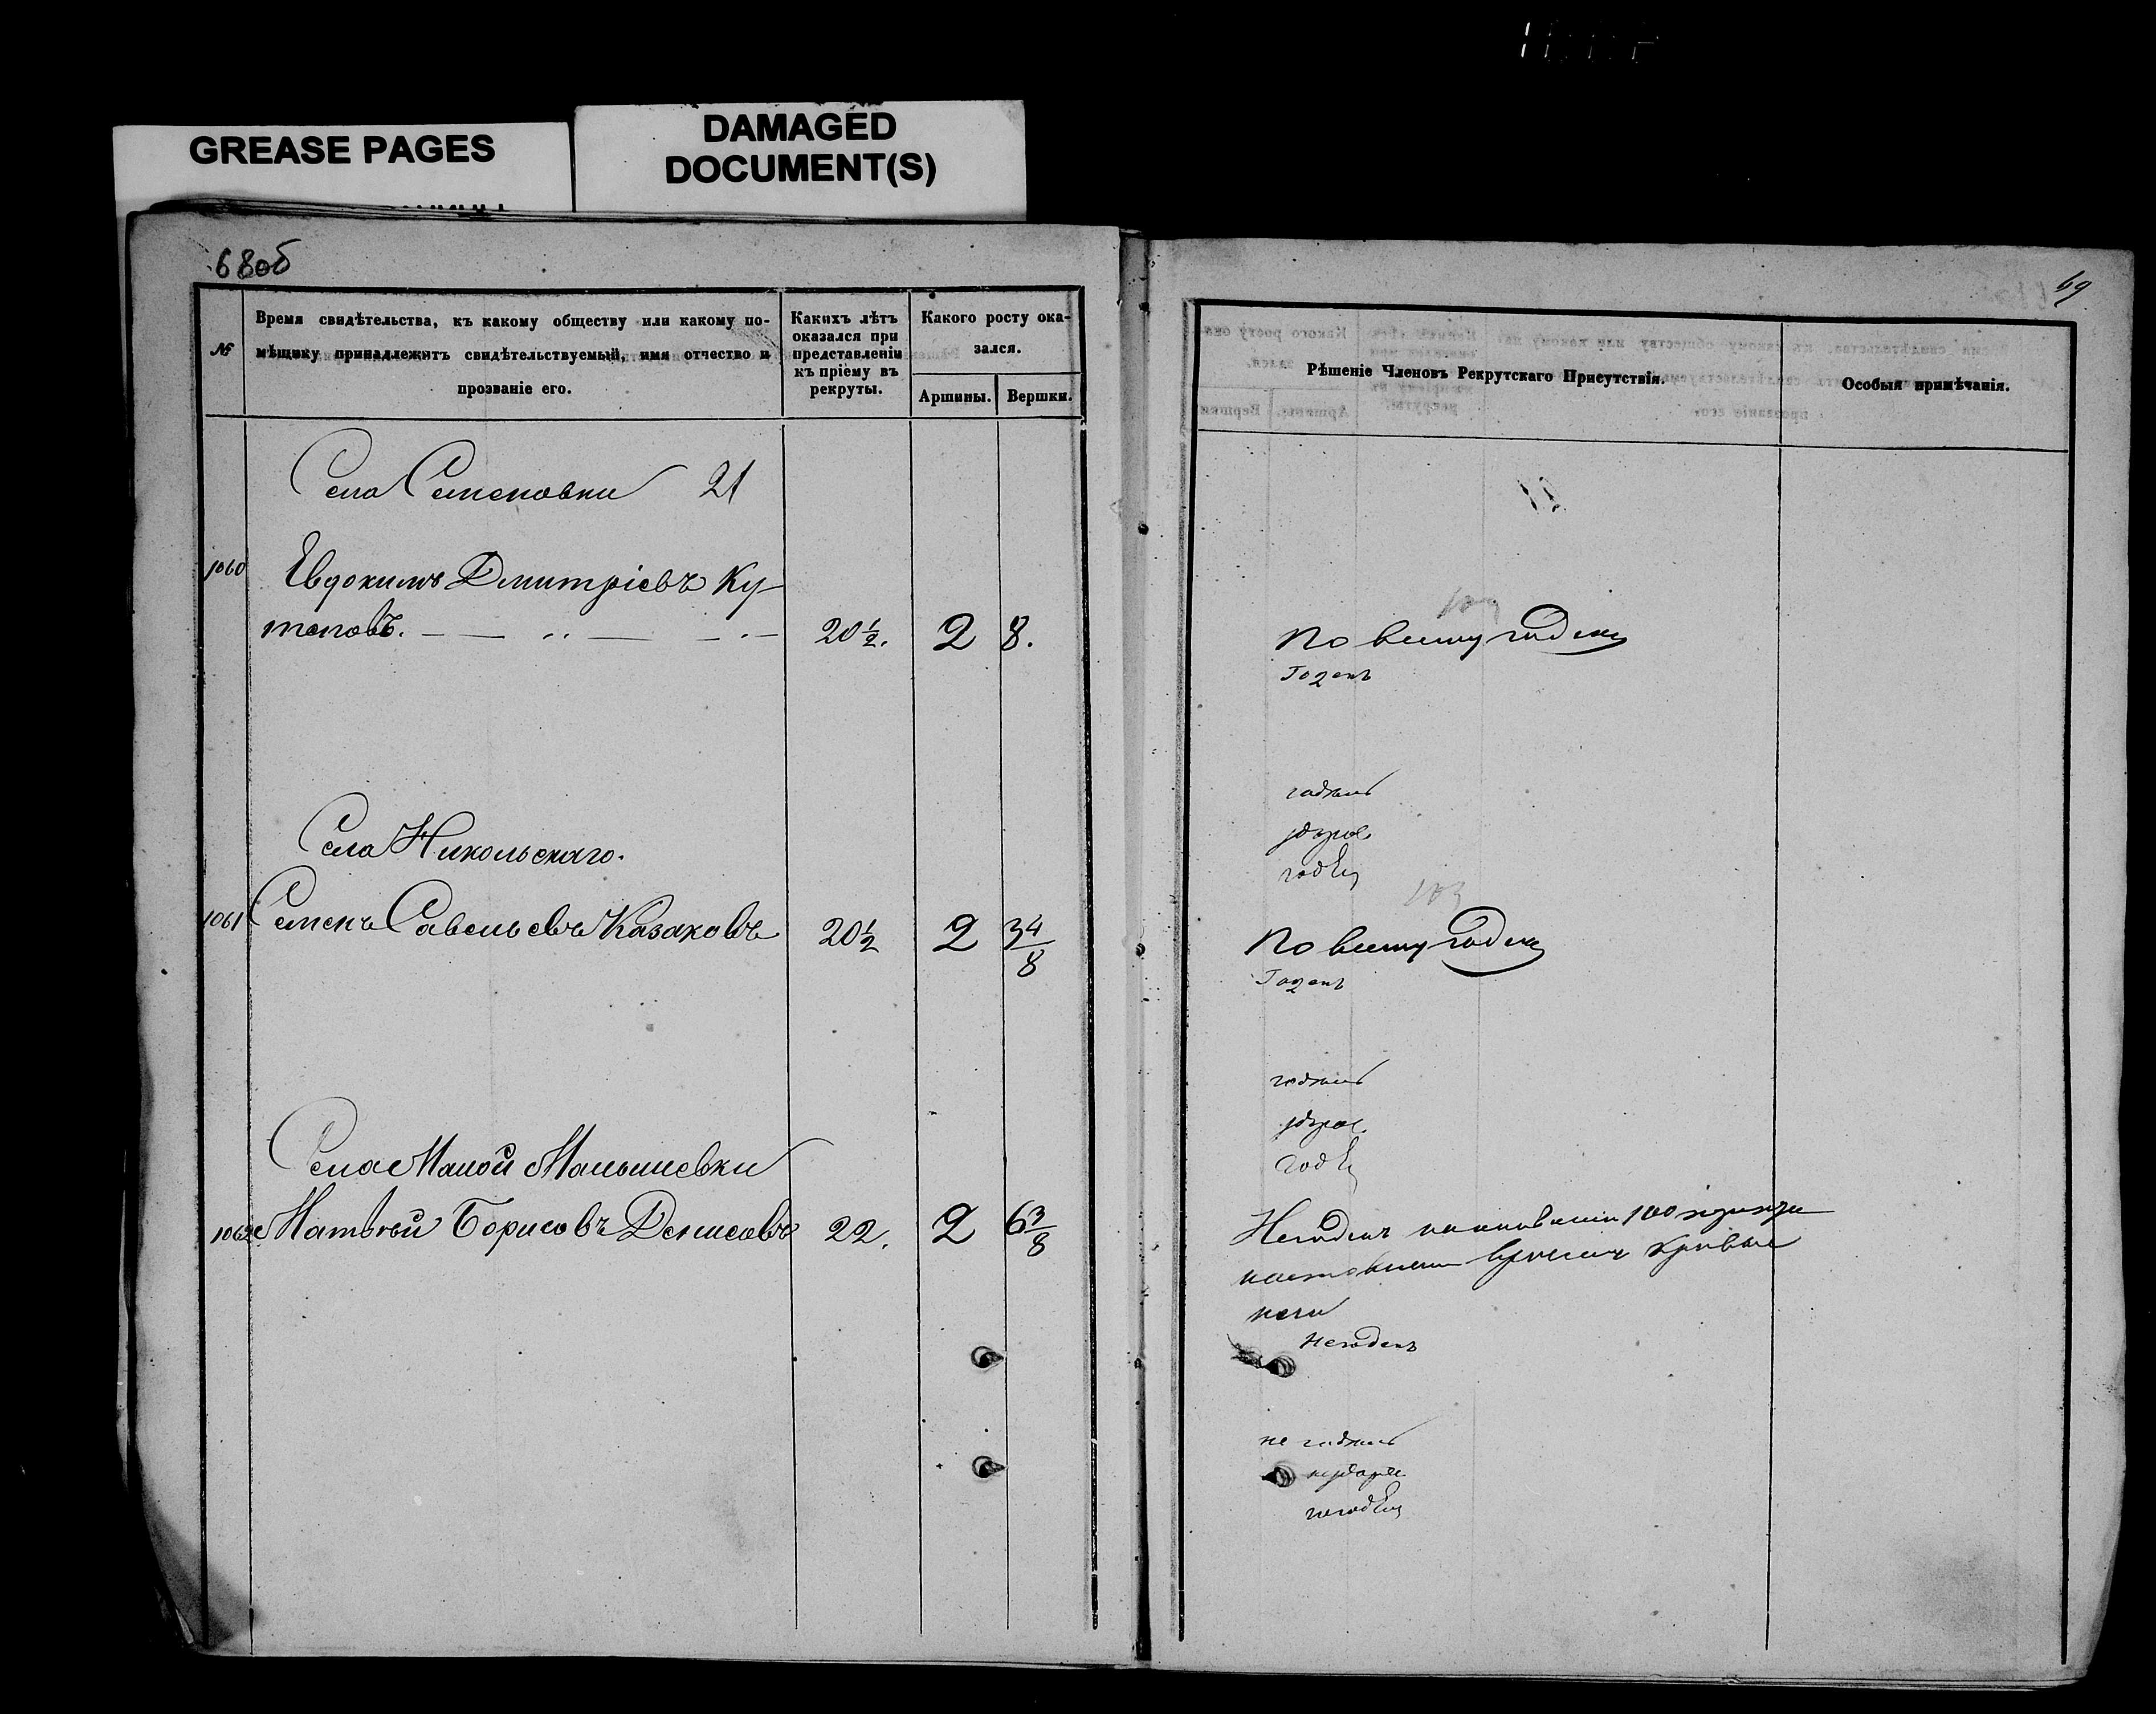 GREASE PAGES
DAMAGED
DOCUMENT(S)
68об
№
Время свидѣтельства, къ какому обществу или какому по-
мѣщику принадлежитъ свидѣтельствуемый, имя отчество и
прозваніе его.
Какихъ лѣтъ
оказался при
представленіи
къ пріему въ
рекруты.
Какого росту ока-
зался.
Аршины.
Вершки.
Села Семеновки 21
1060
Евдокимъ Дмитріевъ Ку-
теповъ.
20 1/2.
2
8.
Села Никольскаго.
1061
Семенъ Савельевъ Казаковъ
20 1/2
2
3 4/8
Села Малой Малышевки
1062
Матвѣй Борисовъ Денисовъ
22.
2
6 3/8
69
Рѣшеніе Членовъ Рекрутскаго Присутствія.
Особыя примѣчанія.
По всему годенъ
Годенъ
годенъ
годенъ
По всему годенъ
Годенъ
годенъ
годенъ
Негоденъ на основаніи 100
кривые
ноги
Негоденъ
не годенъ
негоденъ